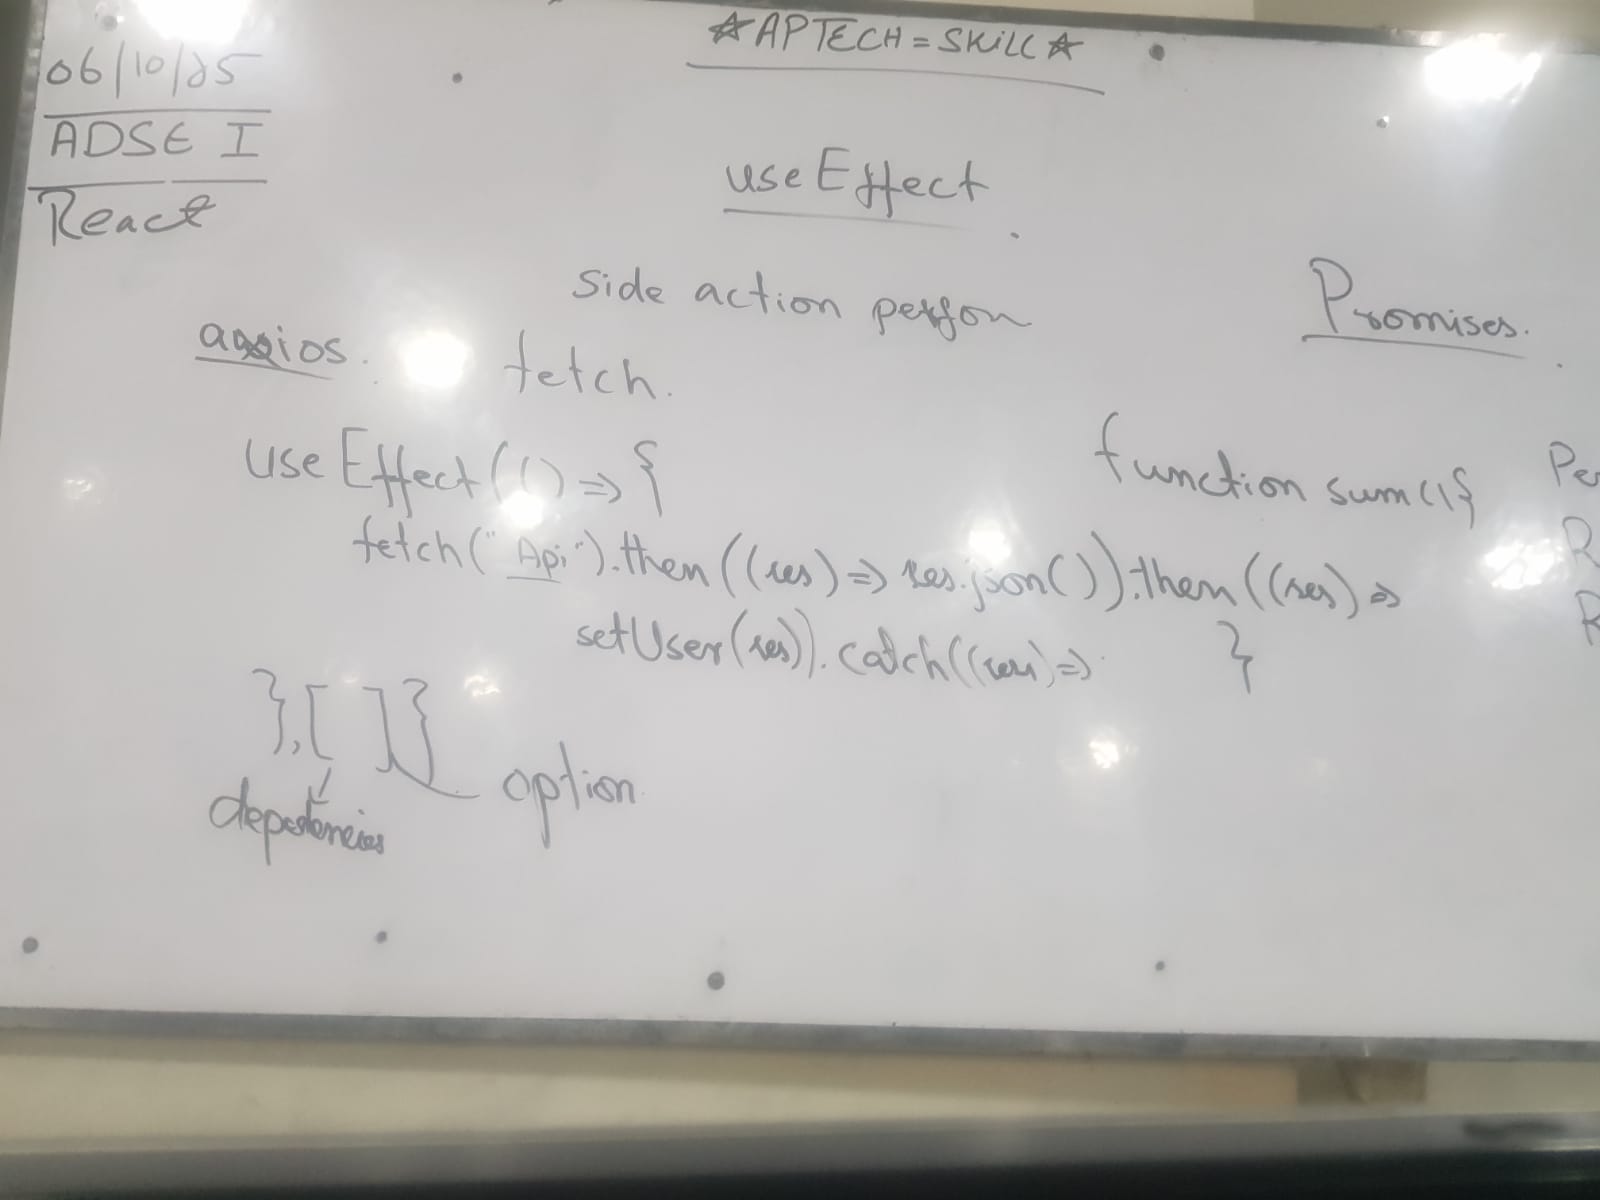 ☆APTECH = SKILL☆
06/10/25
ADSE I
React
useEffect
Side action perfon
axios.
fetch.
Promises.
useEffect(() => {
fetch("Api").then((res) => res.json()).then((res) =>
setUser(res)).catch((res) =>
},[ ]}
dependencies
option
function sum(){
}
Pe
R
R